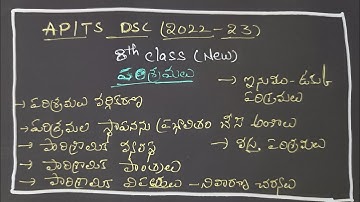 AP|TS DSC (2022-23)
8th class (New)
పరిశ్రమలు
→ ఇనుము-ఉక్కు పరిశ్రమలు
→ పరిశ్రమల వర్గీకరణ
→ పరిశ్రమల స్థాపనను ప్రభావితం చేసే అంశాలు
→ పారిశ్రామిక వ్యవస్థ
→ వస్త్ర పరిశ్రమలు
→ పారిశ్రామిక ప్రాంతాలు
→ పారిశ్రామిక విపత్తులు - నివారణ చర్యలు